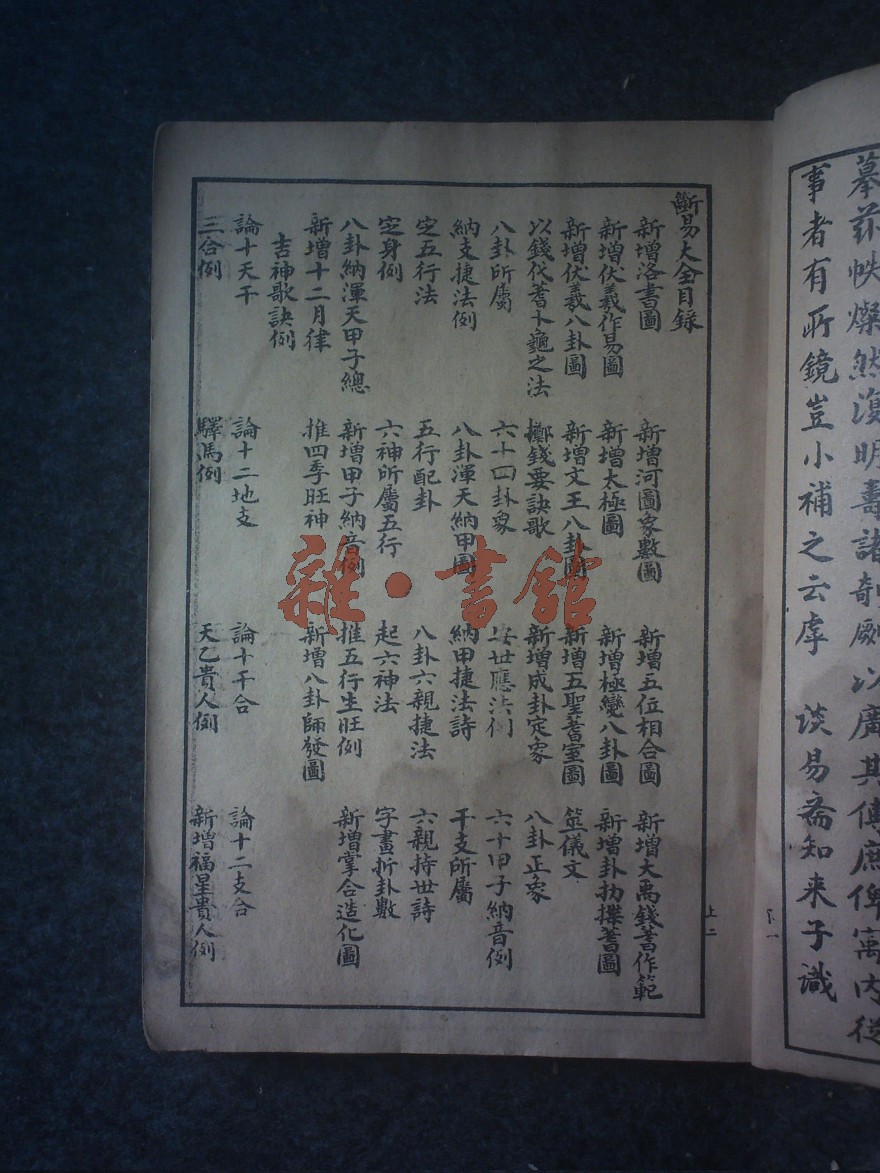 摹茲帙燦然湏明壽諸剞劂以廣其傳庶俾寓内從
事者有所鏡豈小補之云乎 談易齋知来子識
斷易大全目錄
新增洛書圖 新增河圖象數圖 新增五位相合圖 新增大禹錢蓍作範
新增伏羲作易圖 新增太極圖 新增極變八卦圖 新增卦扐揲蓍圖
新增伏羲八卦圖 新增文王八卦圖 新增五聖蓍室圖 筮儀文
以錢代蓍卜龜之法 擲錢要訣歌 新增成卦定象 八卦正象
八卦所屬 六十四卦象 安世應法例 六十甲子納音例
納支捷法例 八卦渾天納甲圖 納甲捷法詩 干支所屬
定五行法 五行配卦 八卦六親捷法 六親持世詩
定身例 六神所屬五行 起六神法 字畫折卦數
八卦納渾天甲子總 新增甲子納音例 推五行生旺例 新增掌合造化圖
新增十二月律 推四季旺神 新增八卦師發圖
吉神歌訣例
論十天干 論十二地支 論十干合 論十二支合
三合例 驛馬例 天乙貴人例 新增福星貴人例
上二
雜·書館